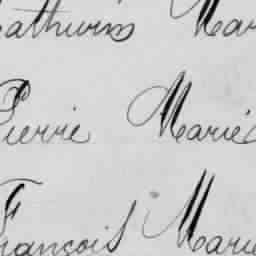 Mathurin Mari
Pierre Marie
François Marie